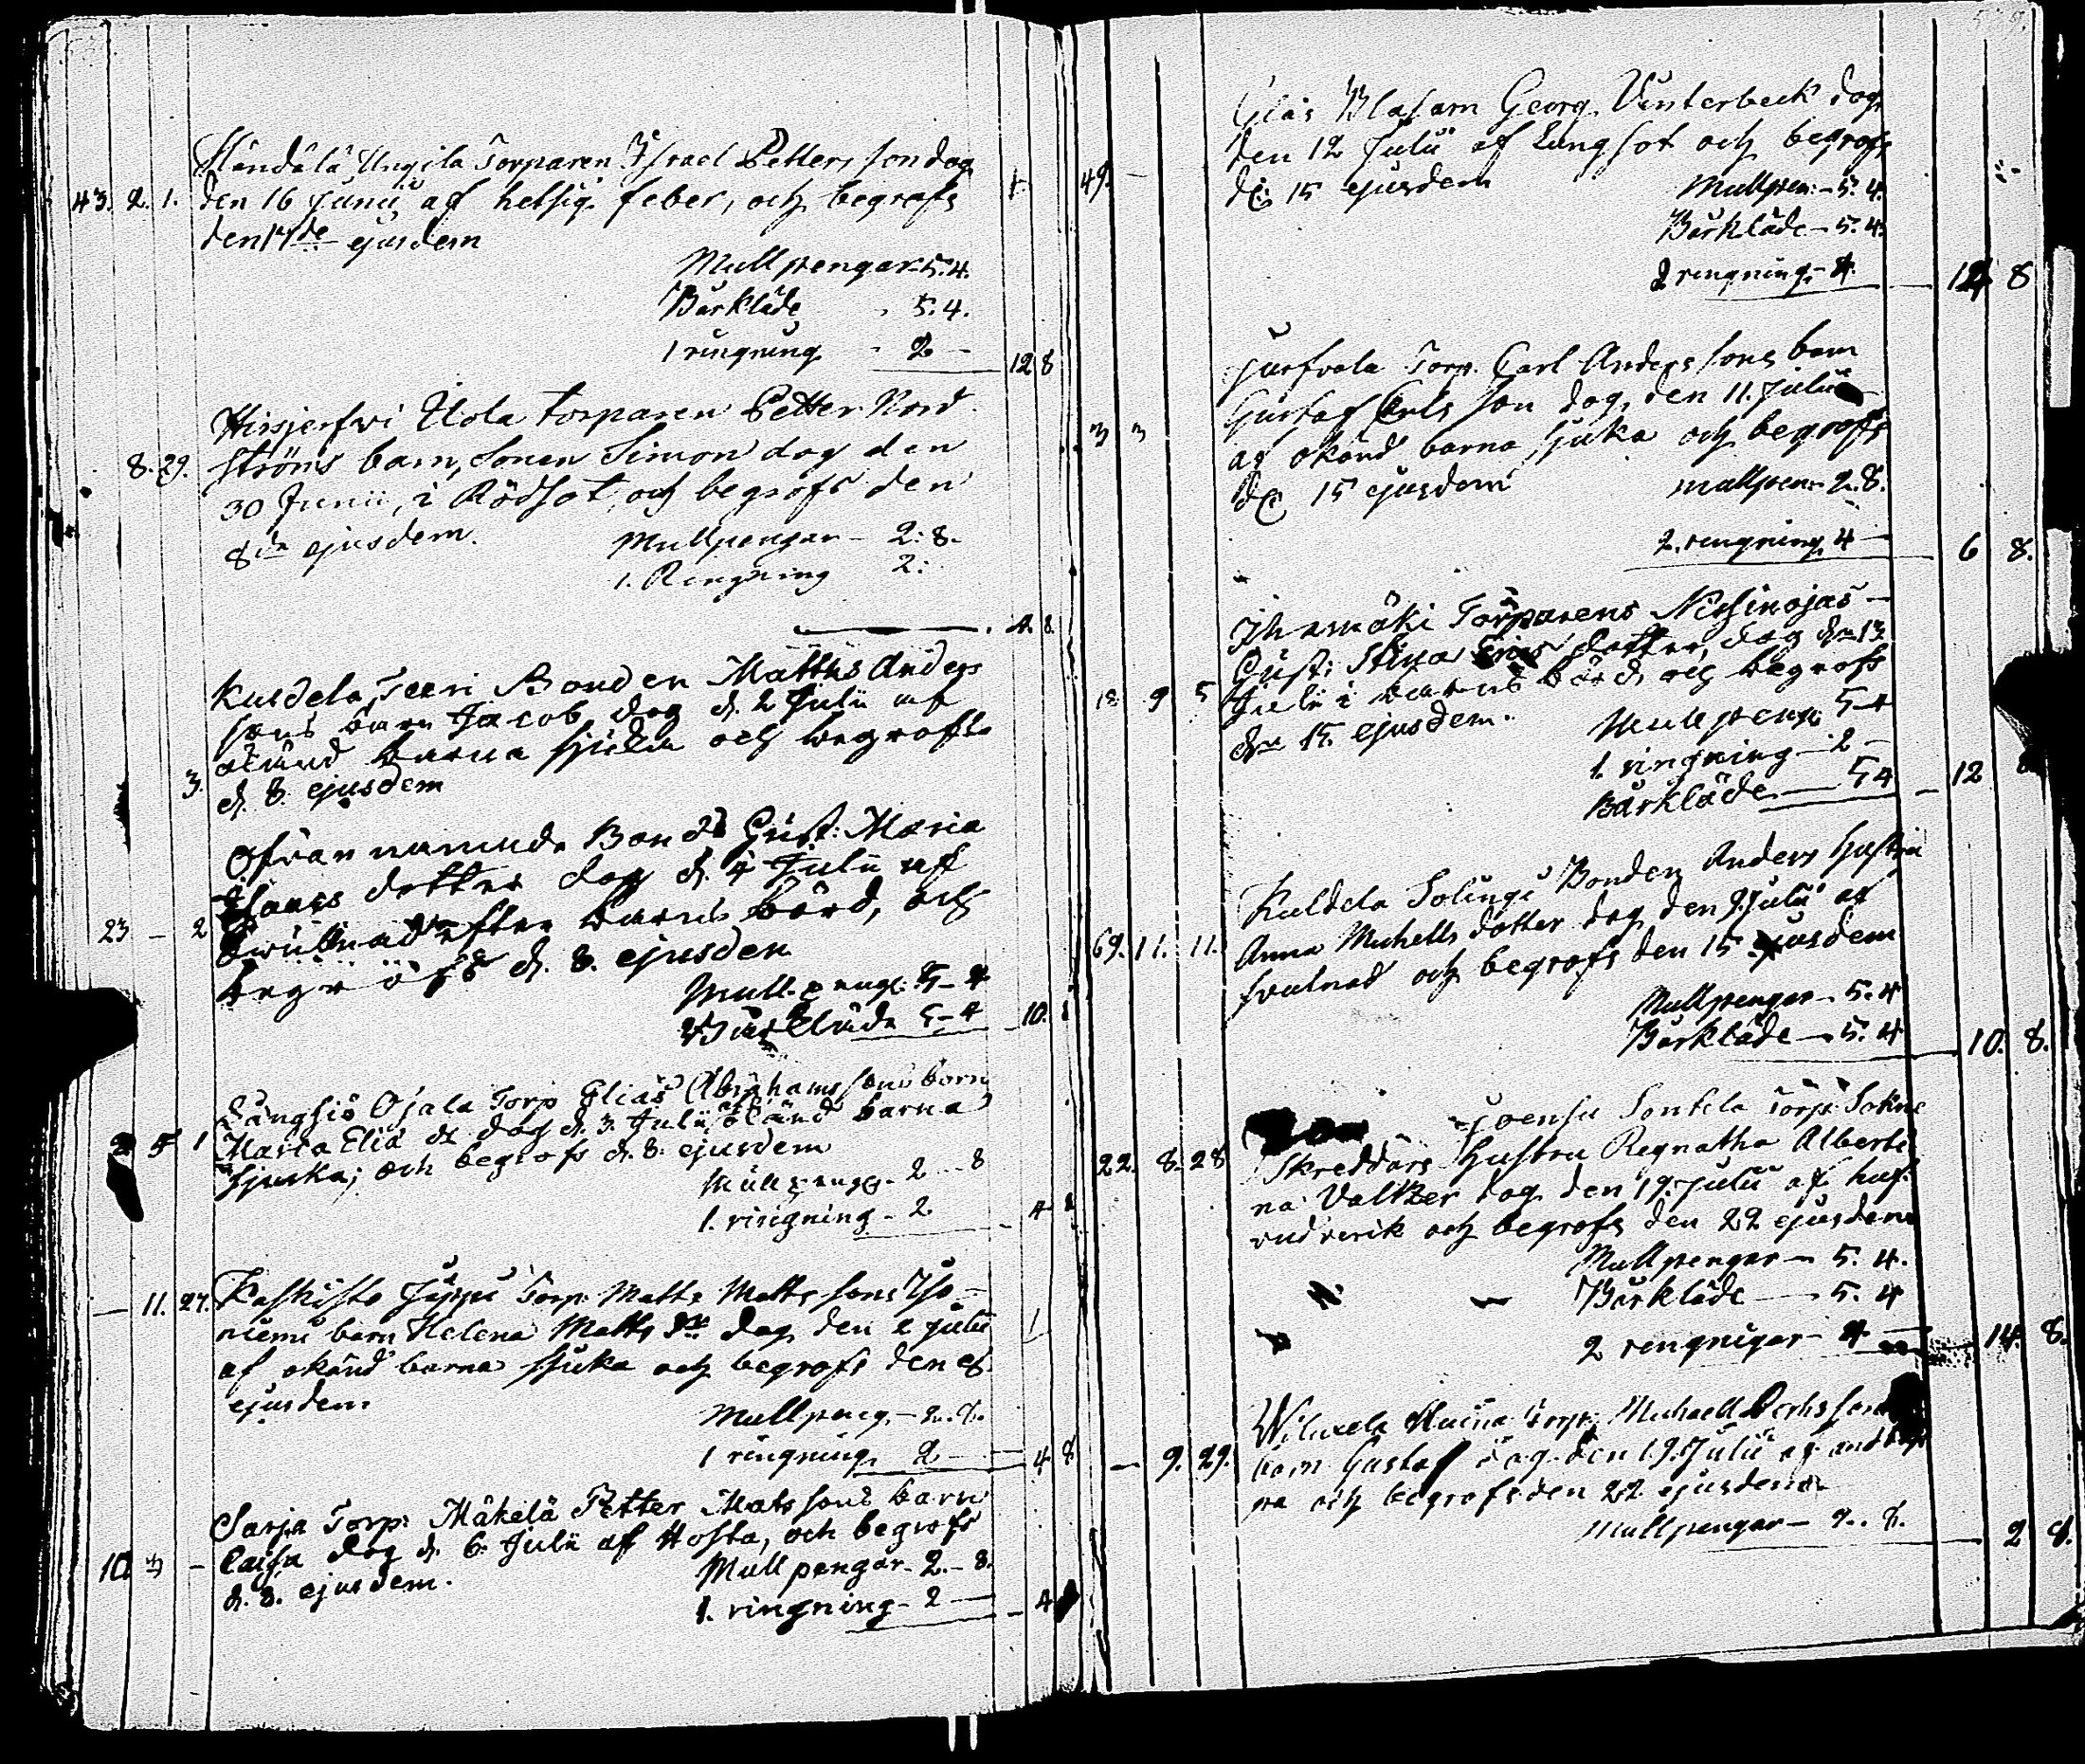 Torparen Israel Petters son dog
43. 2. 1. den 16 Junii af hetsig feber, och begrofs
den 17de ejusdem
Mullpengar - 5. 4.
Bårkläde - 5. 4.
1 ringning - 2 - 12 8
Hirsjerfvi Uola torparen Petter Nord
8. 29. ströms barn, Sonen Simon dog den
30 Junii, i Rödsot, och begrofs den
8de ejusdem.
Mullpengar - 2: 8.
1. Ringning 2:
4. 8.
Kuldela Teeri Bonden Matths Anders
sons barn Jacob dog d. 2 Julii af
okänd barna sjuka och begrofs
3. d. 8. ejusdem
Ofvan namnde Bonds Hust: Maria
dotter dog d. 4 Julii af
23 - 2 Swullnad efter barns börd, och
begrofs d. 8. ejusdem
Mullpeng: 5 - 4
Bårkläde 5 - 4 10.
Långsiö Ojala Torp Elias Abrahams sons barn
5 1 Maria Elia dr dog d. 3. Julii af okänd barna
sjuka; och begrofs d. 8. ejusdem
Mullpeng. 2 - 8
1. ringning - 2 4 8
Kaskisto Juppi Torp. Matts Matts sons Iso-
11. 27. niemi barn Helena Matts dr dog den 2 Julii
af okänd barna sjuka och begrofs den 8
ejusdem
Mullpeng. - 2. 8.
1 ringning 2 - 4 8
Sarja Torp: Mäkelä Petter Mats sons barn
10 Caisa dog d. 6. Julii af Hosta, och begrofs
d. 8. ejusdem.
Mullpengar - 2. - 8.
1. ringning - 2 - 4
Georg Vinterbeck dog
49. - den 12 Julii af Lungsot och begrofs
d. 15 ejusdem
Mullpen: - 5. 4.
Bårkläde - 5. 4.
2 ringning - 4. 14 8
Torp. Carl Anders sons barn
3 3 Gustaf Carls son dog den 11. Julii
af okänd barna sjuka och begrofs
d. 15 ejusdem
mullpen - 2. 8.
2. ringning 4 - 6 8.
Ihamäki Torparens Nissinojas -
Hust: Stina dotter, dog den 13
18 9 5 Julii i barns börd och begrofs
den 15. ejusdem.
Mullpeng: 5 4
1. ringning - 2 -
Bårkläde - 5 4 - 12
Kuldela Solingi Bonden Anders hustru
69. 11. 11. Anna Michells dotter dog den 9 Julii af
svulnad och begrofs den 15 ejusdem
Mullpengar - 5. 4
Bårkläde - 5. 4 10. 8.
Joensu Sontela Torp. Sokne
22. 8. 28 Skreddars Hustru Regnatha Alberti
na Valtzer dog den 19. Julii af huf-
vudverk och begrofs den 22 ejusdem
Mullpengar - 5. 4.
Bårkläde - 5. 4
2 rengnigar - 4 - 14. 8.
Torp. Michaell
- 9. 29. barn Gustaf dog den 19. Julii af
och begrofs den 22 ejusdem
Mullpengar - 2. 8. 2 8.